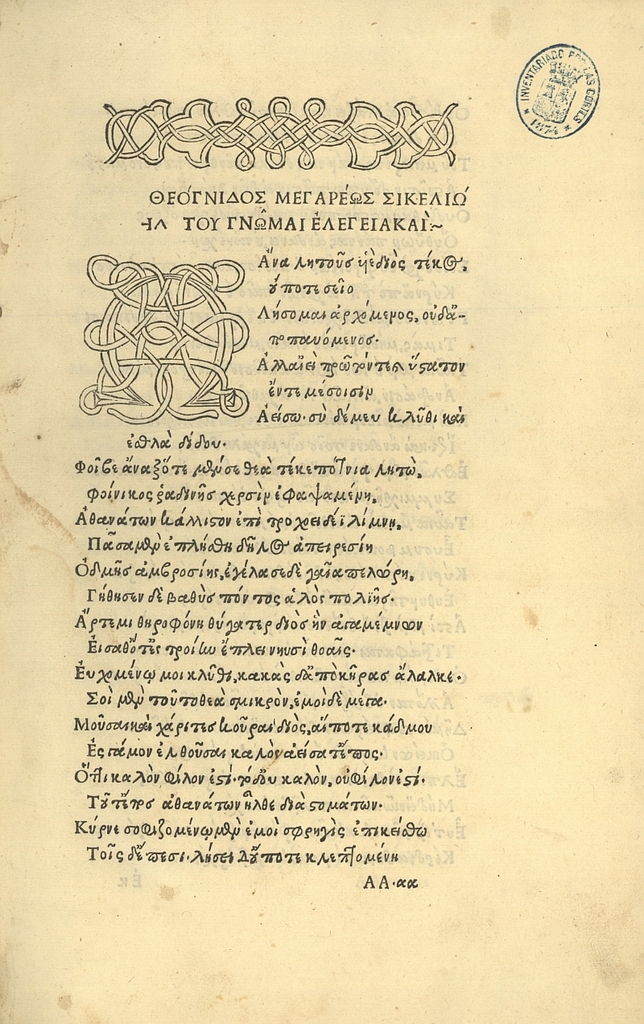 INVENTARIADO POR LAS CORTES
1874
ΘΕΟΓΝΙΔΟΣ ΜΕΓΑΡΕΩΣ ΣΙΚΕΛΙΩ
ΤΟΥ ΓΝΩΜΑΙ ΕΛΕΓΕΙΑΚΑΙ:~
Ἄνα λητοῦς ὑὲ διὸς τέκος,
οὔποτε σεῖο
Λήσομαι ἀρχόμενος, οὐδ' ἀ-
ποπαυόμενος.
Ἀλλ' αἰεὶ πρῶτόν τε καὶ ὕστατον
ἔν τε μέσοισιν
Ἀείσω. σὺ δέ μευ κλῦθι καὶ
ἐσθλὰ δίδου.
Φοῖβε ἄναξ ὅτε μὲν σε θεὰ τέκε πότνια λητὼ,
Φοίνικος ῥαδινῇς χερσὶν ἐφαψαμένη,
Ἀθανάτων κάλλιστον ἐπὶ τροχοειδέϊ λίμνῃ,
Πᾶσα μὲν ἐπλήσθη δῆλος ἀπειρεσίη
Ὀδμῆς ἀμβροσίης, ἐγέλασε δὲ γαῖα πελώρη,
Γήθησεν δὲ βαθὺς πόντος ἁλὸς πολιῆς.
Ἄρτεμι θηροφόνη θύγατερ διὸς ἣν ἀγαμέμνων
Εἵσαθ' ὅτ' ἐς τροίην ἔπλει νηυσὶ θοαῖς.
Εὐχομένῳ μοι κλῦθι, κακὰς δ' ἀπὸ κῆρας ἄλαλκε.
Σοὶ μὲν τοῦτο θεὰ σμικρὸν, ἐμοὶ δὲ μέγα.
Μοῦσαι καὶ χάριτες κοῦραι διὸς, αἵ ποτε κάδμου
Ἐς γάμον ἐλθοῦσαι καλὸν ἀείσατ' ἔπος.
Ὅττι καλὸν φίλον ἐστί. τὸ δ' οὐ καλὸν, οὐ φίλον ἐστί.
Τοῦτ' ἔπος ἀθανάτων ἦλθε διὰ στομάτων.
Κύρνε σοφιζομένῳ μὲν ἐμοὶ σφρηγὶς ἐπικείσθω
Τοῖς δ' ἔπεσι. λήσει δ' οὔποτε κλεπτομένη
ΑΑ.αα